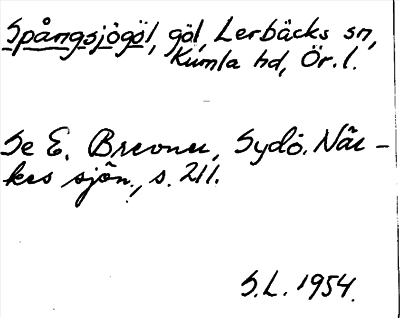 Spångsjögöl, göl, Lerbäcks sn,
Kumla hd, Ör. l.
Se E. Brevner, Sydö. När-
kes sjön., s. 211.
S.L. 1954.